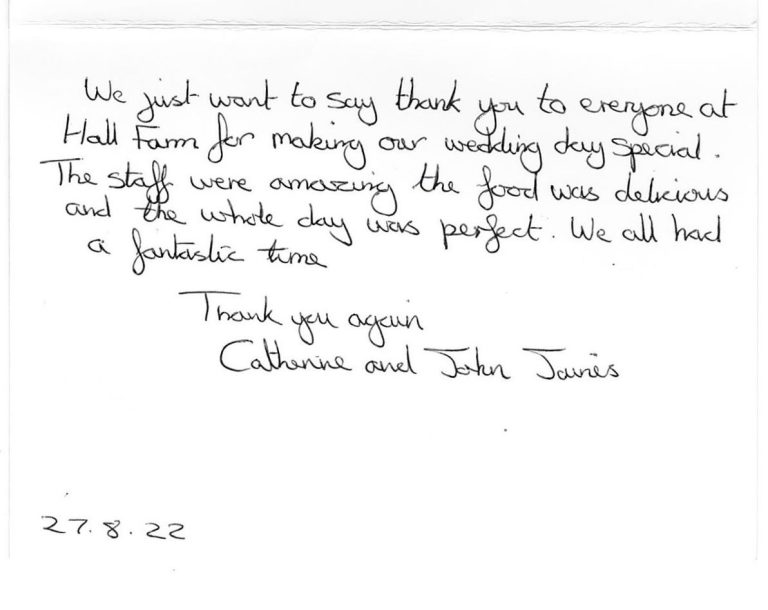 We just want to say thank you to everyone at
Hall Farm for making our wedding day special.
The staff were amazing the food was delicious
and the whole day was perfect. We all had
a fantastic time
Thank you again
Catherine and John
27.8.22